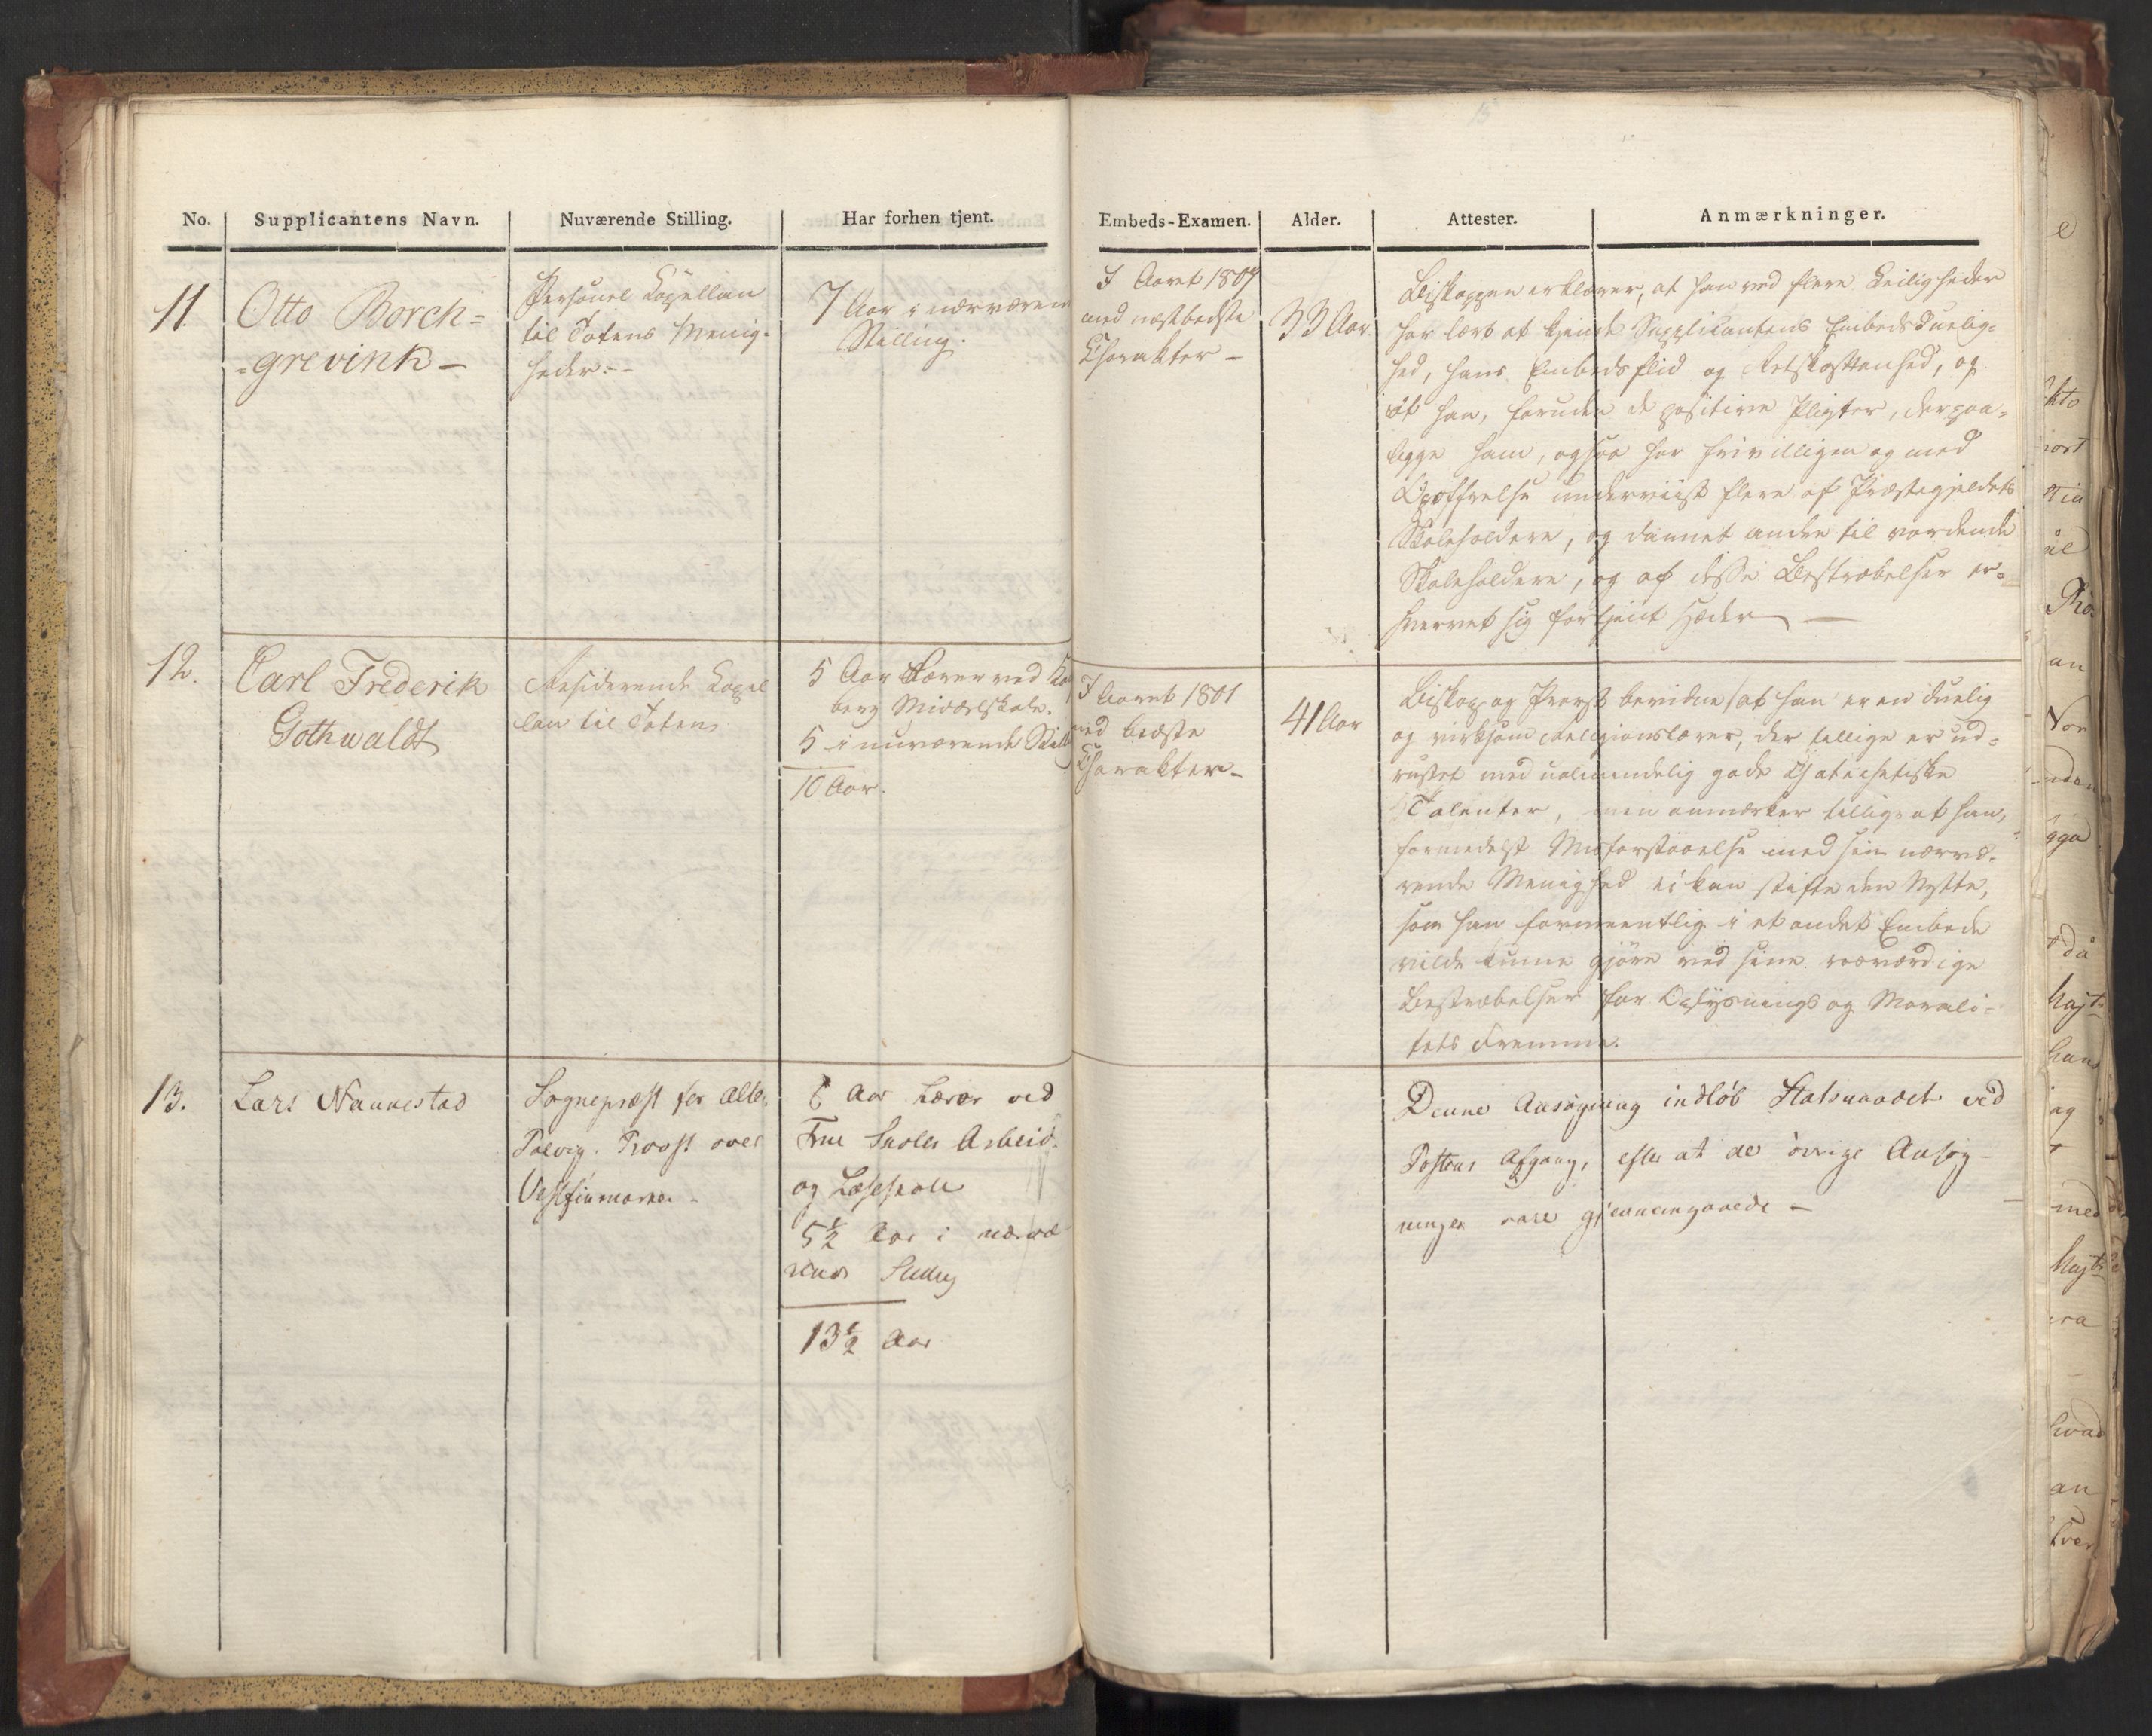 No.
Supplicantens Navn.
Nuværende Stilling.
Har forhen tjent.
Embeds-Examen.
Alder.
Attester.
Anmærkninger.
11.
Otto Borch=
=grevink –
Personel Capellan
til Totens Menig-
heder. –
7 Aar i nærværen
Stilling.
I Aaret 1809
med næstbedste
Charakter –
33 Aar.
Biskoppen erklærer, at han ved flere Leiligheder
har lært at kjende Supplikantens Embedsduelig=
hed, hans Embedsflid og Retskaffenhed, og
at han, foruden de positive Pligter, der paa=
ligge ham, ogsaa har frivilligen og med
Opoffrelse underviist flere af Præstegjeldets
Skoleholdere, og dannet andre til vordende
Skoleholdere, og af disse Bestræbelser er=
hvervet sig fortjent Hæder –
12.
Carl Frederik
Gothwaldt
Residerende Capel
lan til Toten
5 Aar Lærer ved
berg Middelskole.
5 i nuværende Still
10 Aar.
I Aaret 1801
med bedste
Charakter –
41 Aar
Biskop og Provst bevidne at han er en duelig
og virksom Religionslærer, der tillige er ud=
rustet med ualmindelig gode Chatechetiske
Talenter, men anmærker tillige at han,
formedelst Misforstaaelse med sin nærvæ-
rende Menighed ei kan stifte den Nytte,
som han formeentlig i et andet Embede
vilde kunne gjöre ved sine roeværdige
Bestræbelser for Oplysnings og Morali=
tets Fremme.
13.
Lars Nannestad
Sognepræst for Alten
Talvig. Provst over
Vestfinmarken –
8 Aar Lærer ved
Frue Skoles Arbeid-
og Læseskole
5½ Aar i nærvæ
rende Stilling
13½ Aar
Denne Ansögning indlöb Statsraadet ved
Postens Afgang, efter at de övrige Ansög-
ninger vare gjennemgaaede –